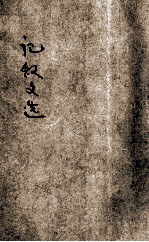 记叙文选